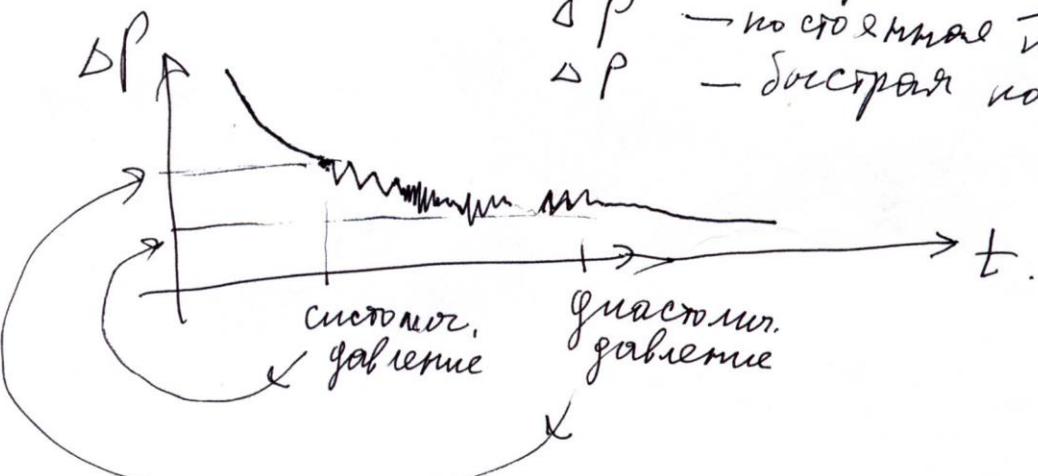 ΔP — постоянная
ΔP — быстрая
ΔP
t.
систолич.
давление
диастолич.
давление